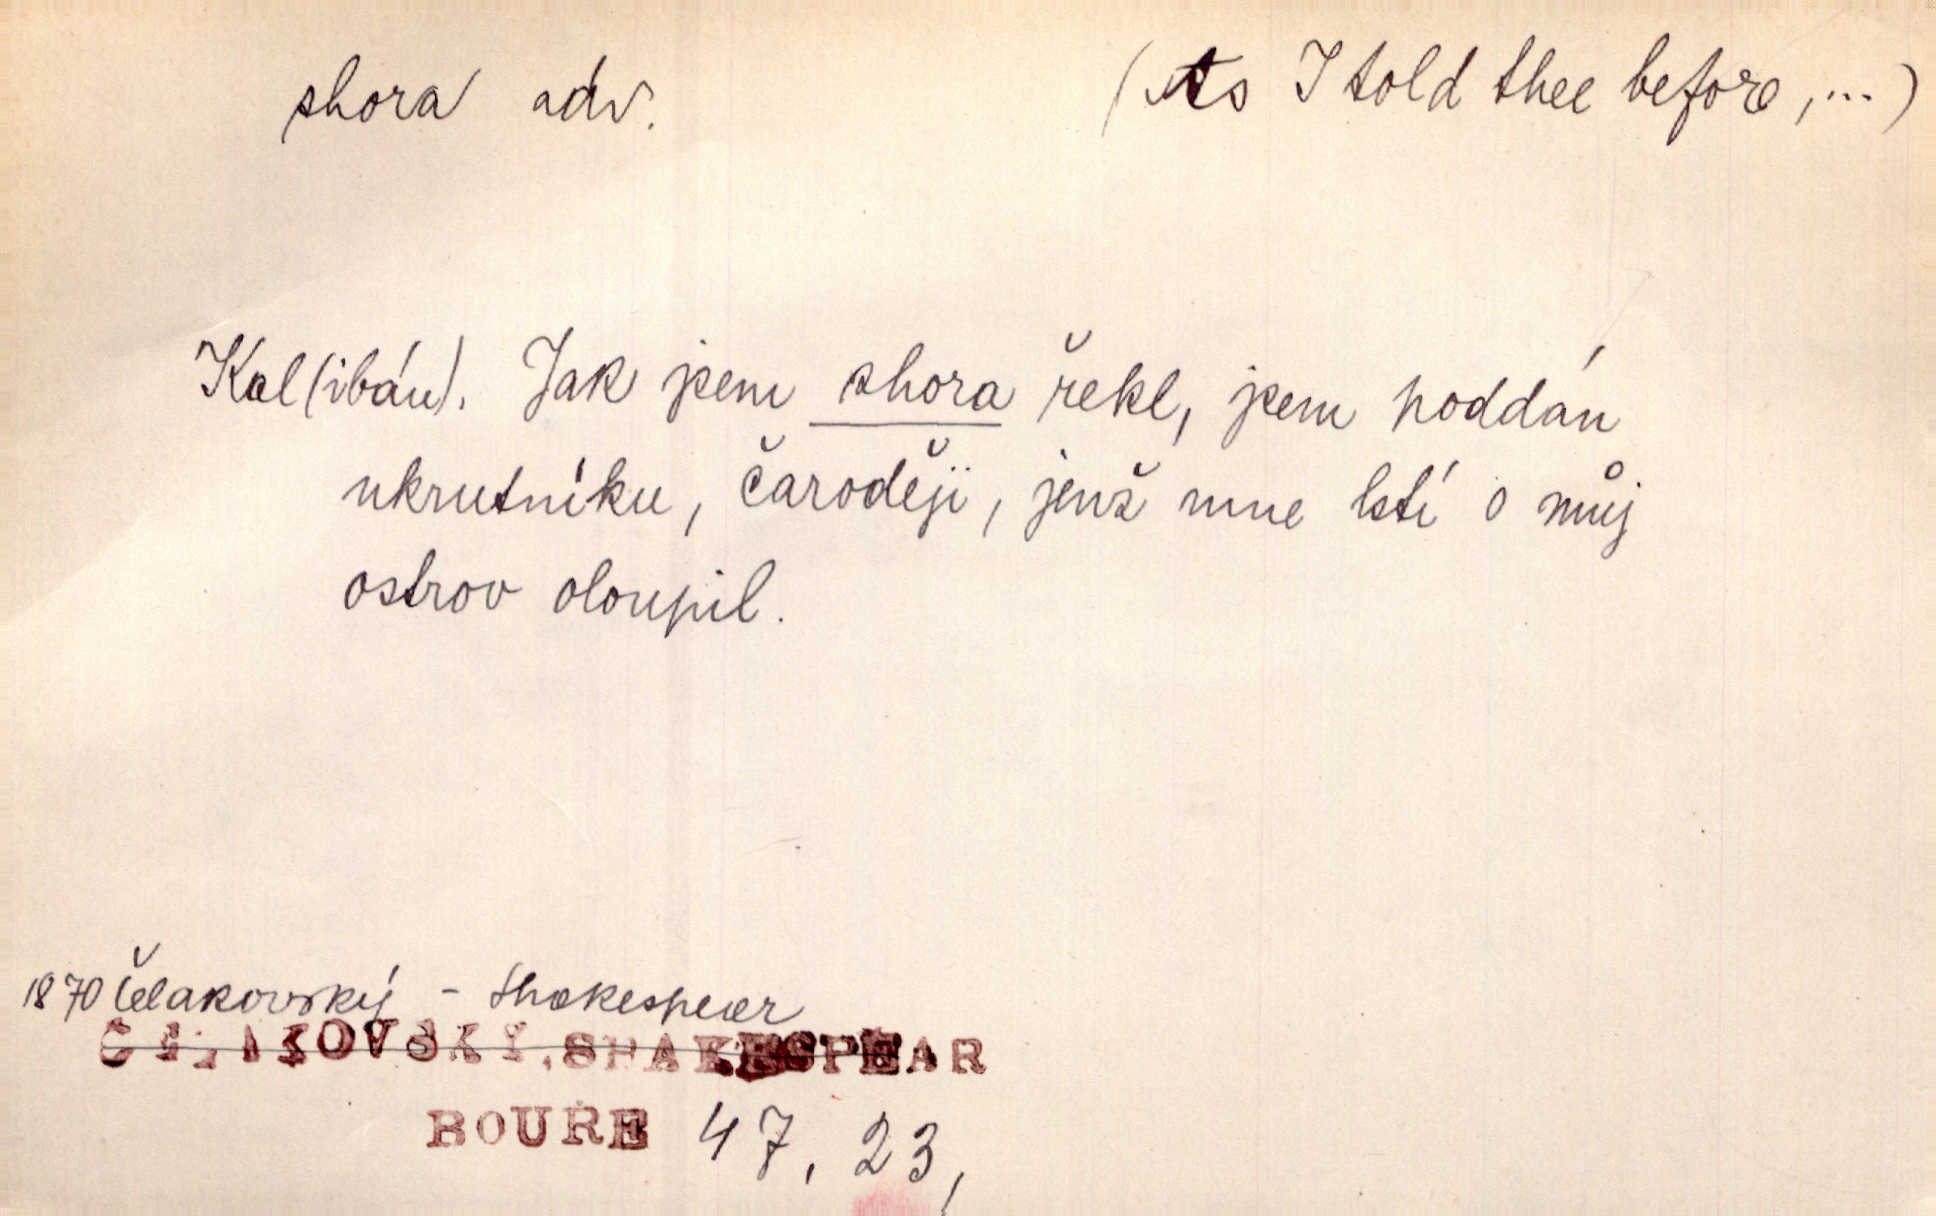 shora adv. (As I told thee before, ...)
Kal(ibán). Jak jsem shora řekl, jsem poddán
ukrutníku, čaroději, jenž mne lstí o můj
ostrov oloupil.
1870 Čelakovský - Shakespear
ČELAKOVSKÝ, SHAKESPEAR
BOUŘE 47, 23,